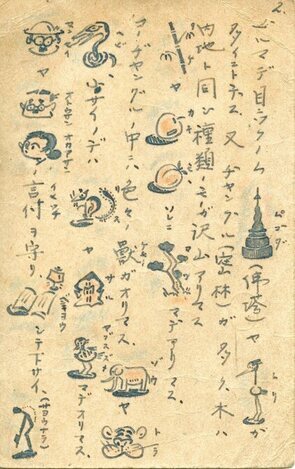 2.
ビルマデ目ニツクノハ パゴダ (佛塔)ヤ トリ ガ
多イコトデス。又 ヂャングル(密林)ガ 多ク、木ハ
内地ト同ジ種類ノモノガ沢山アリマス
タケ ヤ カキ モモ ソレニ マツ マデアリマス。
コノヂャングルノ中ニハ色々ノ獣ガオリマス。
ケモノ
ゾウ ヤ トラ
ヘビ 小サイノデハ リス ヤ サル マデオリマス。
センセイ ヤ オトウサン オカアサン ノ言付ヲ守リ
イイツケ
ベンキョウ シテ下サイ、(サヨウナラ)